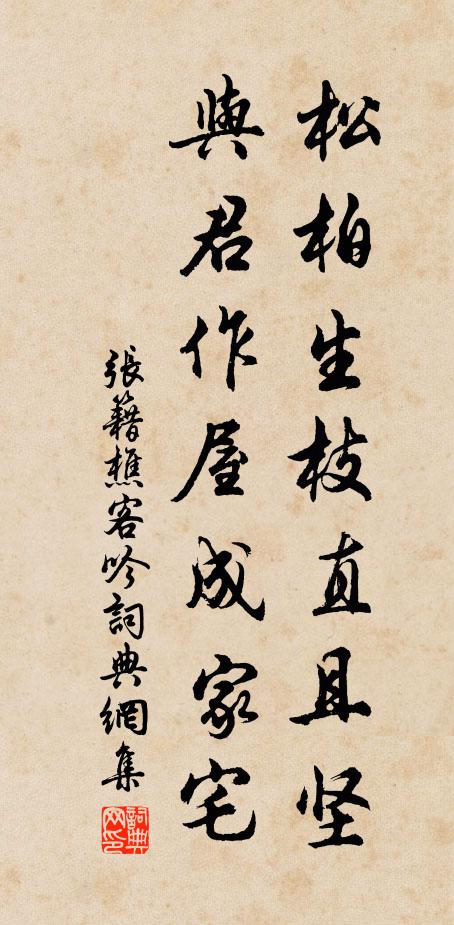 松柏生枝直且坚
與君作屋成家宅
張籍樵客吟詞典網集
詞典网印